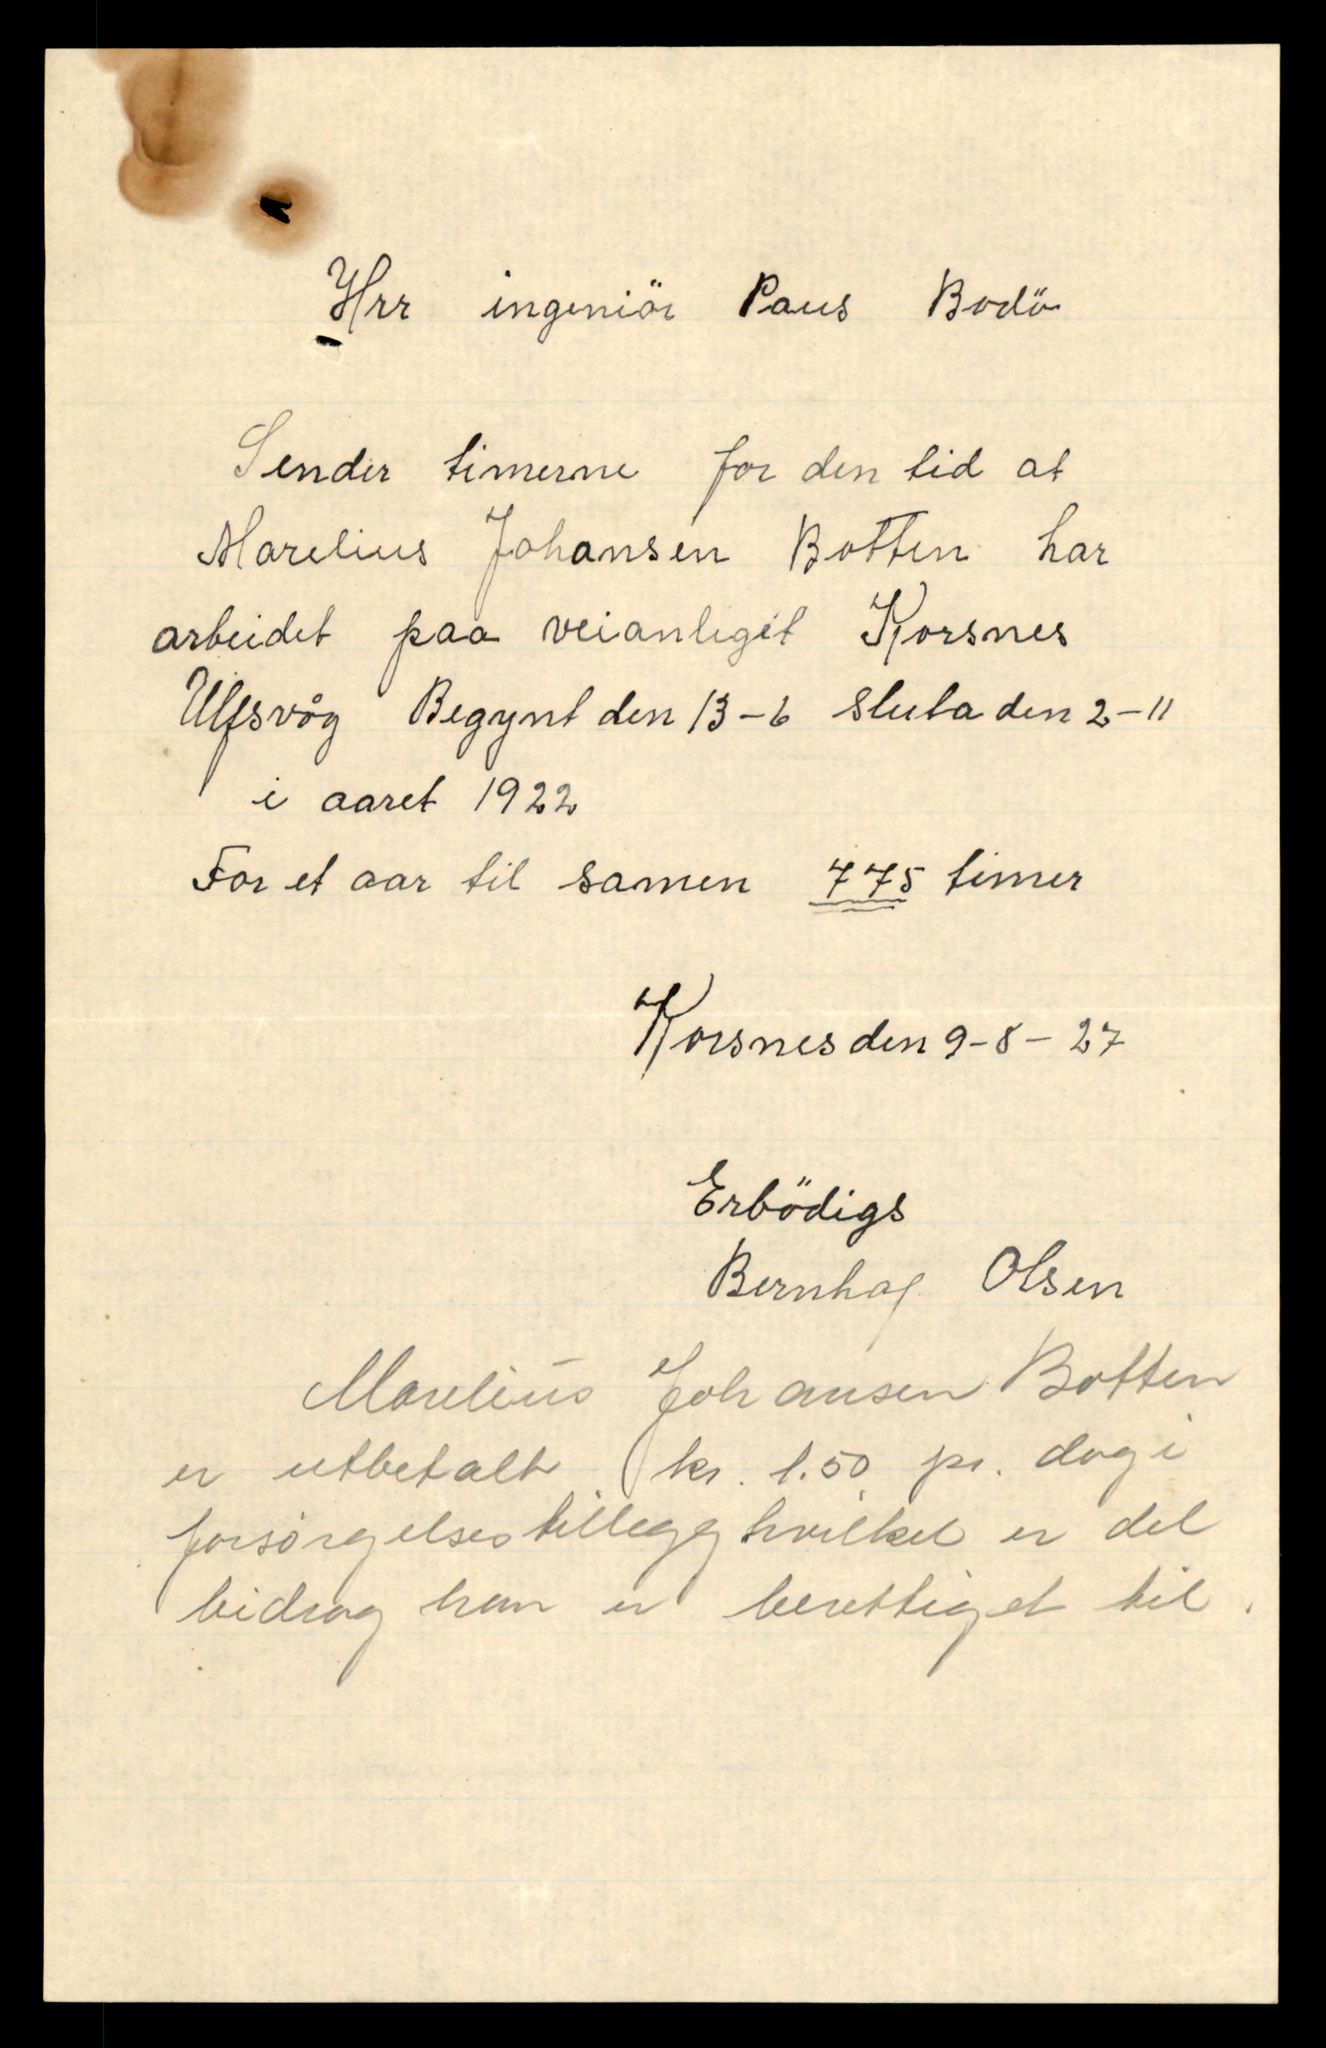 Hrr ingeniör Paus Bodö
Sender timerne for den tid at
Marelius Johansen Botten har
arbeidet paa veianleget Korsnes
Ulfsvåg Begynt den 13-6 sluta den 2-11
i aaret 1922
For et aar til samen 775 timer
Korsnes den 9-8-27
Erbödigs
Bernhof Olsen
Marelius Johansen Botten
er utbetalt kr. 1.50 pr. dag i
forsørgelsestillegg hvilket er det
bidrag han er berettiget til.